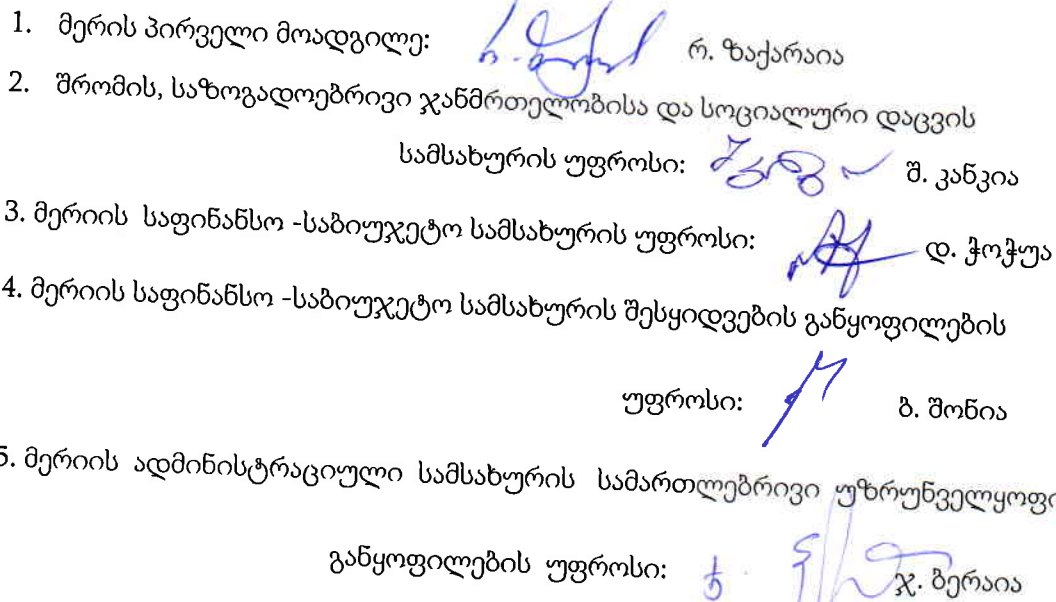 1. მერის პირველი მოადგილე: რ. ზაქარაია
2. შრომის, საზოგადოებრივი ჯანმრთელობისა და სოციალური დაცვის
სამსახურის უფროსი: შ. კანკია
3. მერიის საფინანსო -საბიუჯეტო სამსახურის უფროსი: დ. ჭოჭუა
4. მერიის საფინანსო -საბიუჯეტო სამსახურის შესყიდვების განყოფილების
უფროსი: ბ. შონია
5. მერიის ადმინისტრაციული სამსახურის სამართლებრივი უზრუნველყოფი
განყოფილების უფროსი: ჯ. ბერაია